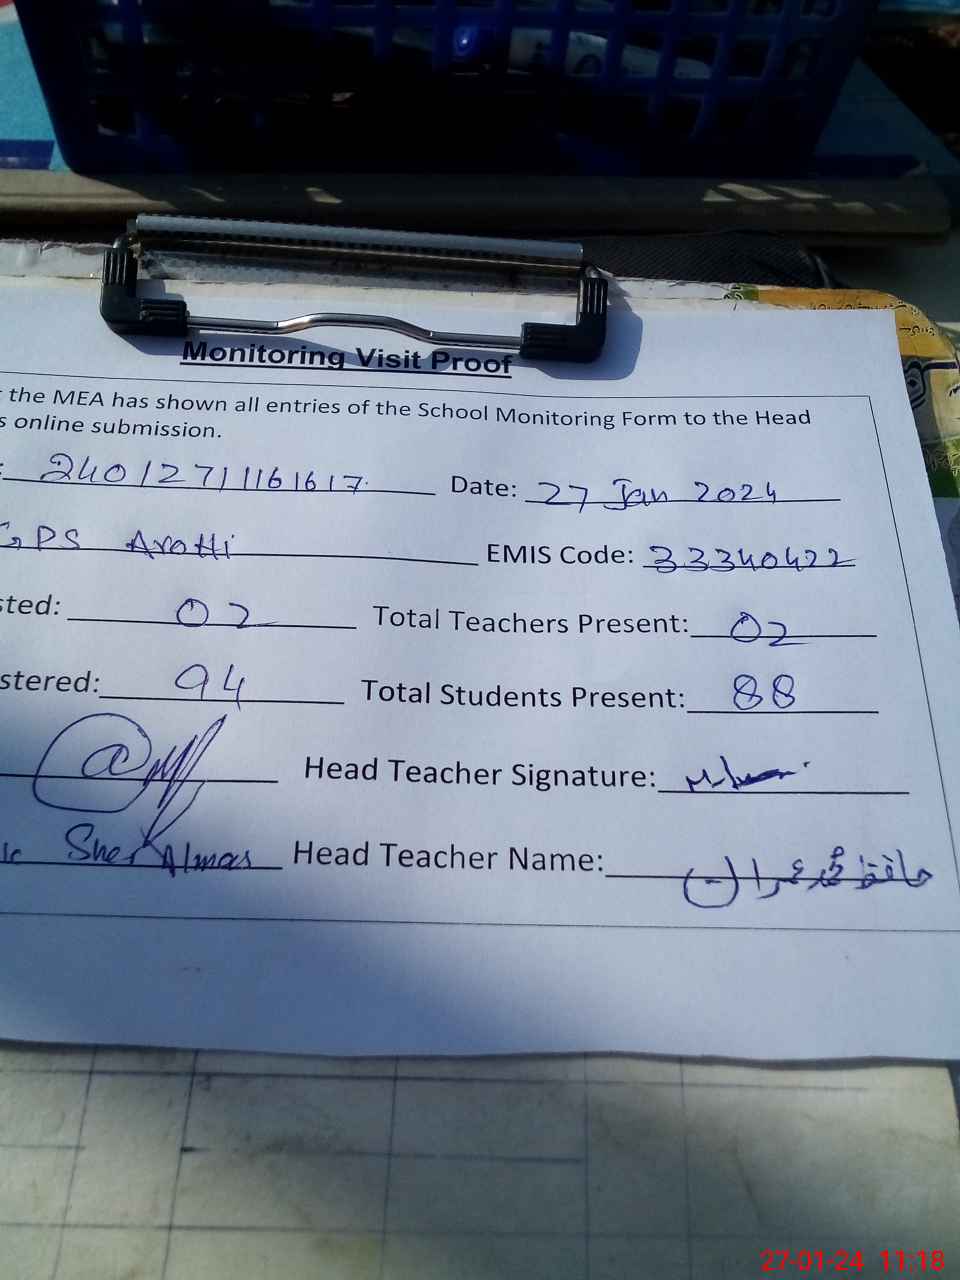 Monitoring Visit Proof
the MEA has shown all entries of the School Monitoring Form to the Head
s online submission.
: 240127111161617 Date: 27 Jan 2024
GPS Arotti EMIS Code: 33340422
sted: 02 Total Teachers Present: 02
stered: 94 Total Students Present: 88
Head Teacher Signature:
Sher Almas Head Teacher Name: حافظ محمد عمران
27-01-24 11:18